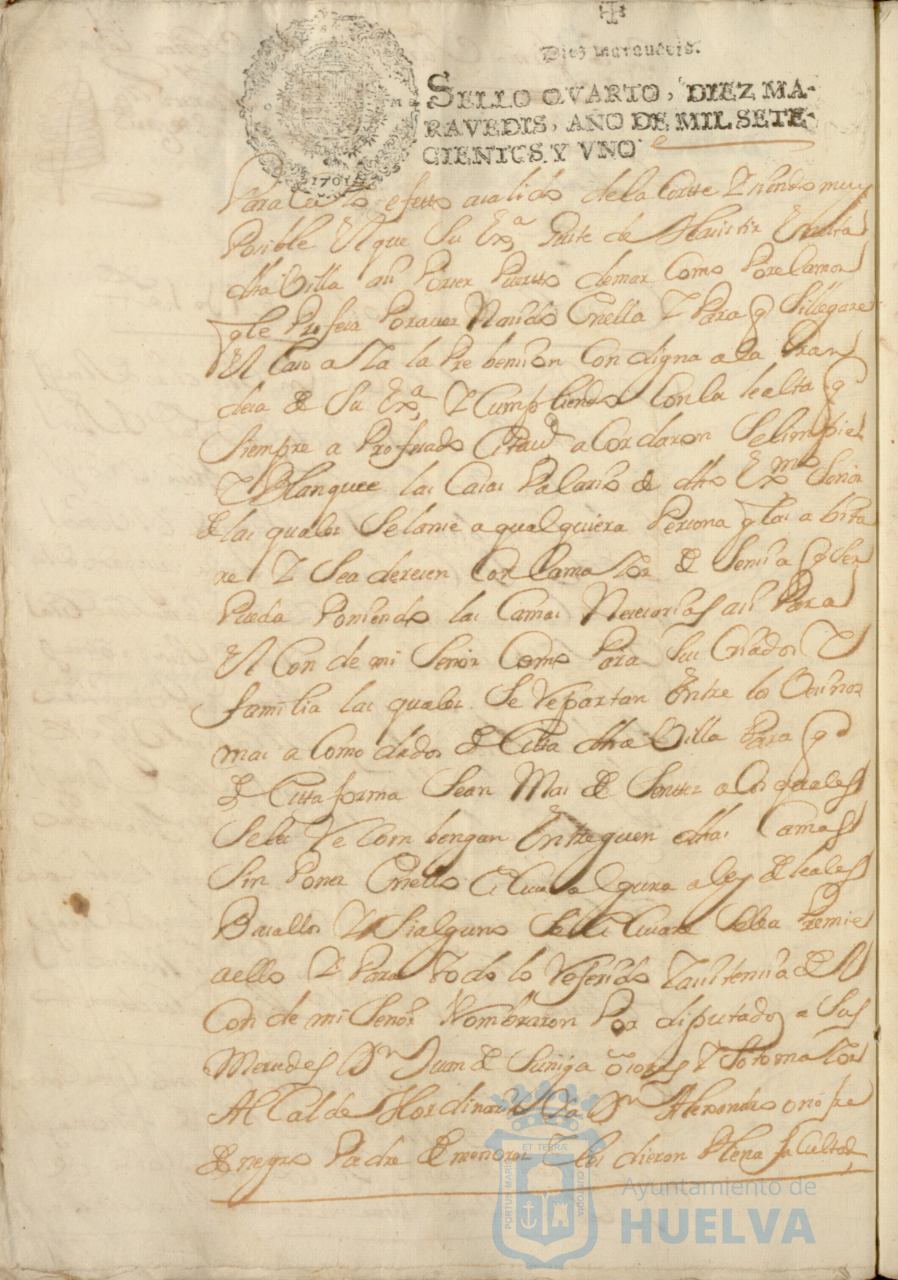 Diez maravedis.
SELLO QVARTO, DIEZ MA-
RAVEDIS, AÑO DE MIL SETE-
CIENTOS Y VNO
1701
Para cuio efetto a salido de la Corte Y siendo muy
Posible El que Su Exª Guste de Asistir En esta
dha Villa asi Por ser Puerto de mar Como Por el amor
q le Profesa Por aver Nasido En ella Y Para q Si llegare
El Caso a Ya la Prebension Condigna a la Gran
desa de Su Exª, Y Cumpliendo Con la lealta q
Siempre a Profesado Esta vª acordaron Se limpien
Y Blanqueen las Casas Palasio de dho Exmo Señor
de las quales Se lanse a qualquiera Persona q las abita
re Y Se adresen Con la maior desensia q Ser
Pueda Poniendo las Camas Nesesarias asi Para
El Conde mi Señor Como Para Sus Criados Y
familia las quales Se Repartan Entre los Vesinos
mas acomodados de Esta dha Villa Para q
de Esta forma Sean Mas desentes a los quales
Se les Recombengan Entreguen dhas Camas
Sin Poner En ello Escusa alguna a ley de leales
Basallos Y Si alguno Se Escusare Se le a Premie
a ello Y Para Todo lo Referido Y asistensia de El
Conde mi Señor Nombraron Por diputados a Sus
Mersedes Dn Juan de Suñiga Y Sotomaior
Alcalde Hordinario Y a Dn Alexandro onofre
de negro Padre de menores Y les dieron Plena facultad
PORTUS MARIS ET TERRÆ CUSTODIA
Ayuntamiento de
HUELVA